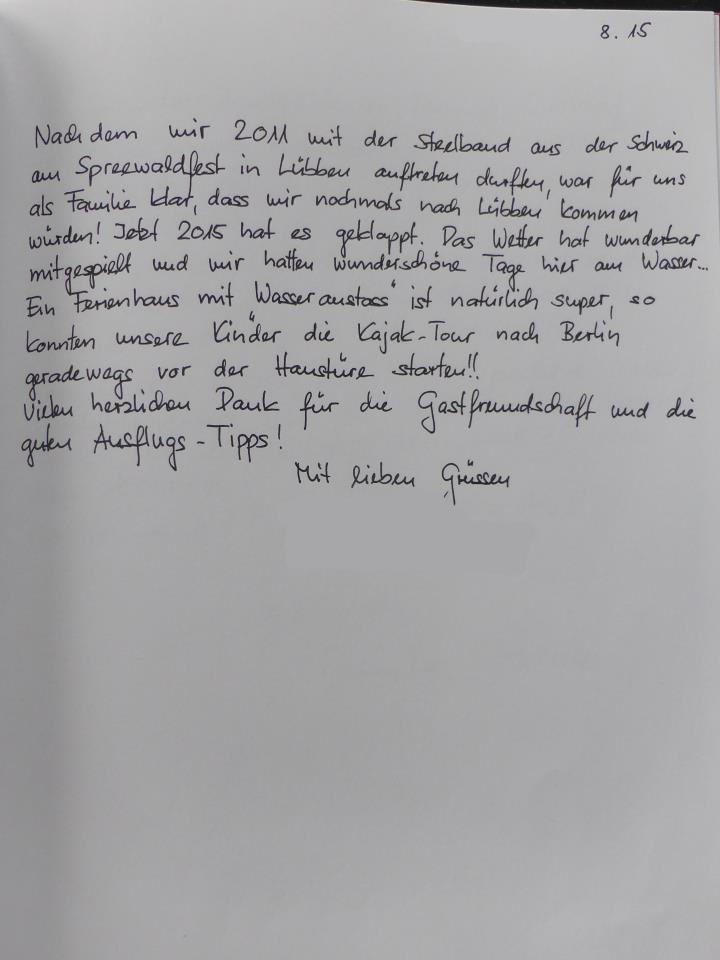 8. 15
Nachdem wir 2011 mit der Steelband aus der Schweiz
am Spreewaldfest in Lübben auftreten durften, war für uns
als Familie klar, dass wir nochmals nach Lübben kommen
würden! Jetzt 2015 hat es geklappt. Das Wetter hat wunderbar
mitgespielt und wir hatten wunderschöne Tage hier am Wasser...
Ein Ferienhaus mit "Wasseranstoss" ist natürlich super, so
konnten unsere Kinder die Kajak-Tour nach Berlin
geradewegs vor der Haustüre starten!!
Vielen herzlichen Dank für die Gastfreundschaft und die
guten Ausflugs-Tipps!
Mit lieben Grüssen